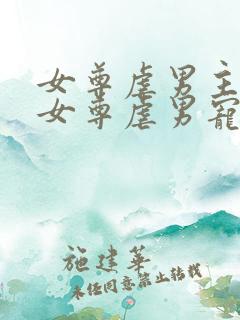 女尊虐男主
女尊虐男寵
施建華
未任同意禁止转载